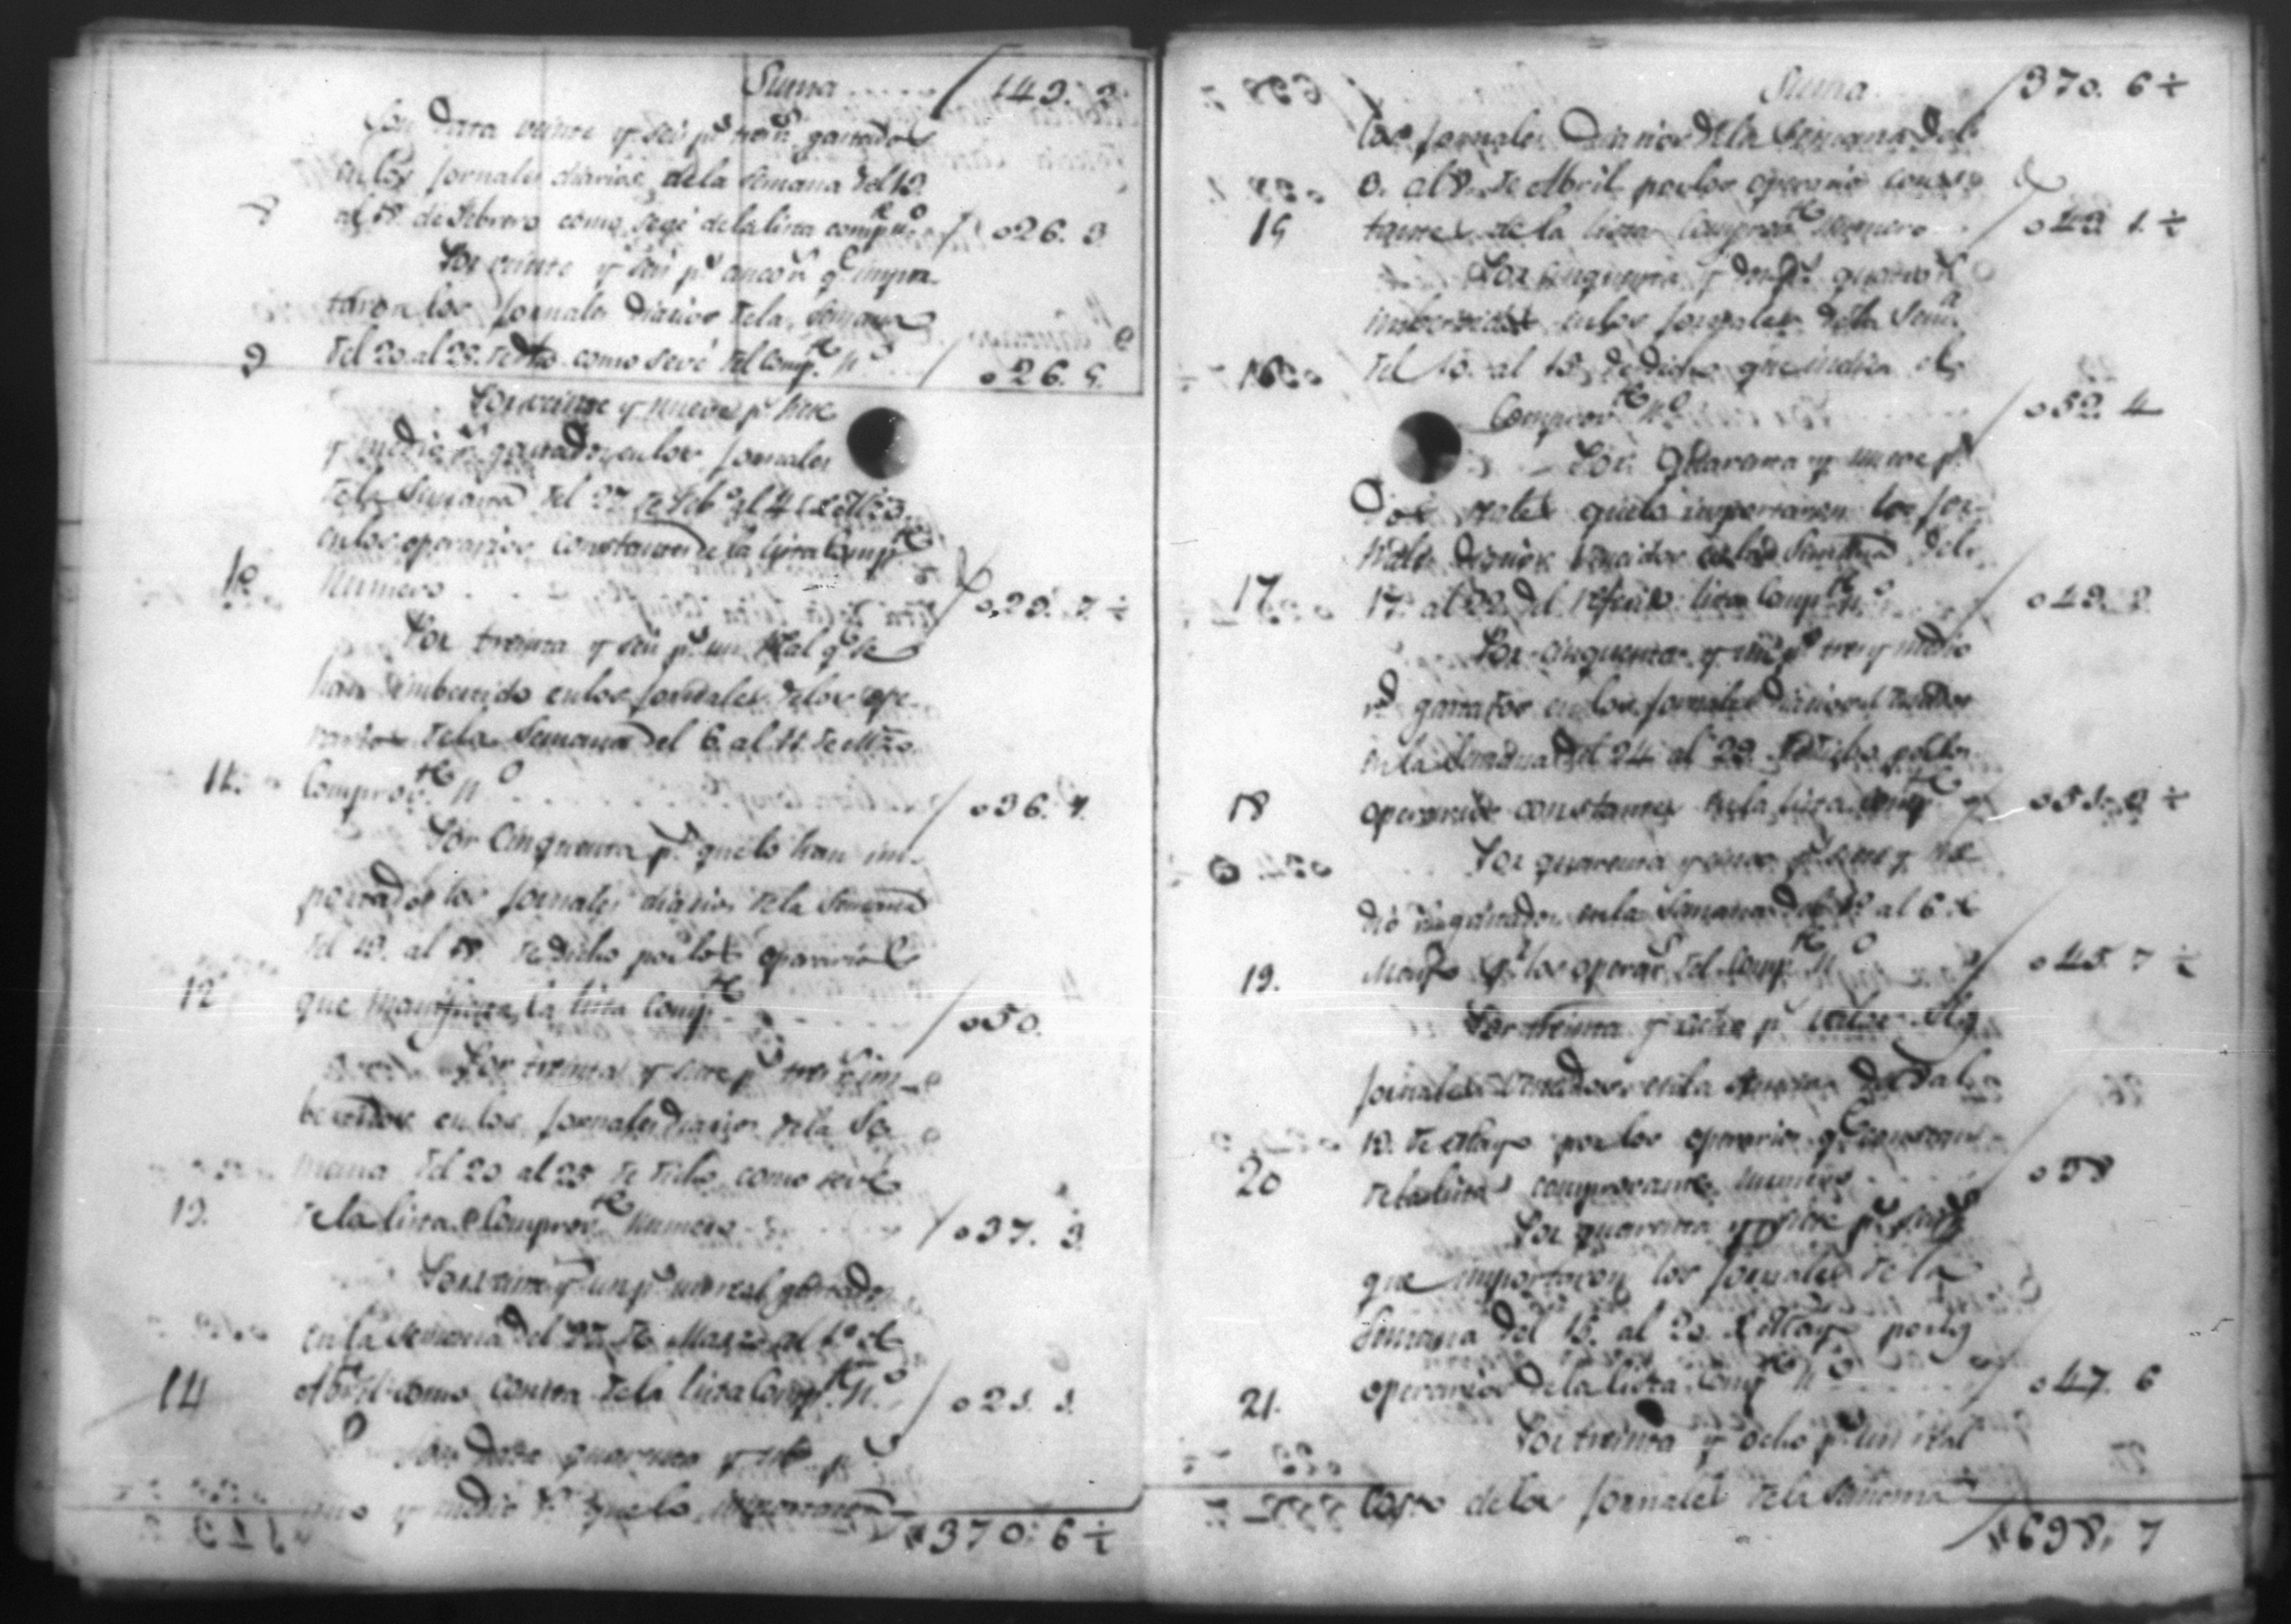 Suma ..... 143. 2.
Son Data veinte y seis p.s tres r.s ganados
en los Jornales diarios dela semana del 13.
8 al 18. de Febrero como se ve dela lista comp.te n.o 026. 3
Por veinte y seis p.s cinco r.s q.e impor-
taron los Jornales Diarios dela Semana
9 del 20. al 25. de dho. como se ve del Comp.te N.o 026. 5.
Por veinte y nueve p.s siete
y medio r.s ganados en los Jornales
de la Semana del 27 de Feb.o al 4 de Mzo.
en los operarios constantes de la lista Comp.te
10 Numero .... 029. 7. ½
Por treinta y seis p.s un Real q.e se
han imbertido en los Jornales delos ope-
rarios dela Semana del 6. al 11. de Mzo.
11. Comprov.te N.o .... 036. 1.
Por Cinquenta p.s que lo han im-
portado los Jornales diarios dela Semana
del 13. al 18. de dicho por los operarios
12 que manifiesta la lista Comp.te 050.
Por treinta y siete p.s tres r.s im-
bertidos en los Jornales diarios dela Se-
mana del 20 al 25 de dicho como se ve
13. de la lista Comprov.te Numero 037. 3.
Por veinte y un p.s un real ganados
en la Semana del 27. de Marzo al 1.o de
14 Abril como consta dela lista Comp.te N.o 021. 1.
Son Data quarenta y p.s
uno y medio r.s que lo importaron
370. 6 ½
Suma 370. 6 ½
los Jornales Diarios dela Semana del
3. al 8. de Abril por los operarios cons-
15 tantes de la lista Comprov.te Numero 043 1. ½
Por cinquenta y dos p.s quatro r.s
imbertidos en los Jornales dela Sem.a
16 del 10. al 15. de dicho que indica el
Comprov.te N.o 052. 4
Por Quarenta y nueve p.s
Dos reales que lo importaron los Jor-
nales Diarios vencidos en la Semana del
17 17. al 22. del referido lista Comp.te N.o 049. 2.
Por cinquenta y un p.s tres y medio
r.s ganados en los Jornales Diarios
en la Semana del 24 al 29. de dicho por los
18 operarios constantes de la lista Comp.te 051. 3 ½
Por quarenta y cinco p.s siete y me-
dio r.s ganados en la Semana del 1.o al 6 de
19. Mayo p.r los operar.s del Comp.te N.o 045. 7 ½
Por treinta y ocho p.s valor de los
Jornales vencidos en la Semana del 8 al
13. de Mayo por los operarios q.e constan
20 de la lista comprovante numero 038
Por quarenta y siete p.s seis r.s
que importaron los Jornales de la
Semana del 15. al 20. de Mayo por los
21. operarios dela lista Comp.te N.o 047. 6
Por treinta y ocho p.s un real
de los Jornales dela Semana
698. 7